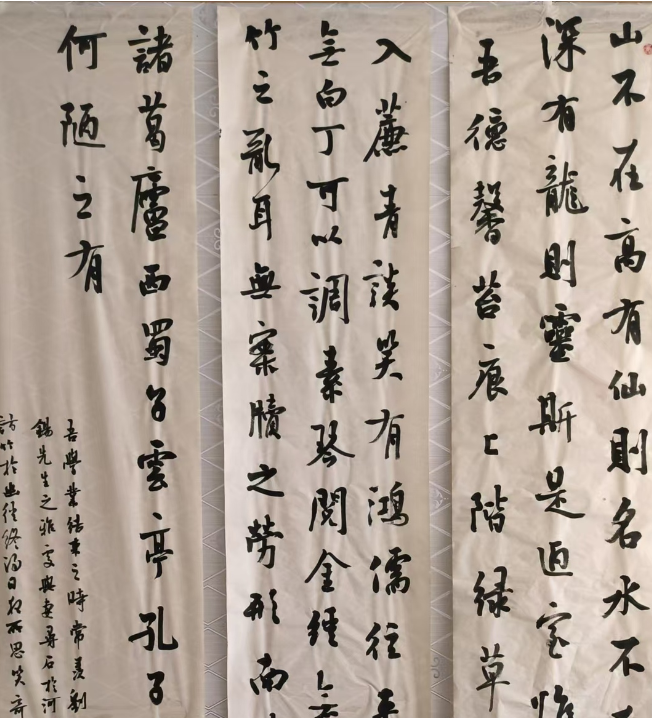 山不在高有仙則名水不
深有龍則靈斯是陋室惟
吾德馨苔痕上階緑草
入簾青談笑有鴻儒往来
無白丁可以調素琴閱金經無
竹之亂耳無案牘之勞形南
諸葛廬西蜀子雲亭孔子
何陋之有
吾學業結束之時常羨劉
錫先生之雅室與妻尋石於河
訪竹於幽徑終得日夜所思笑奇